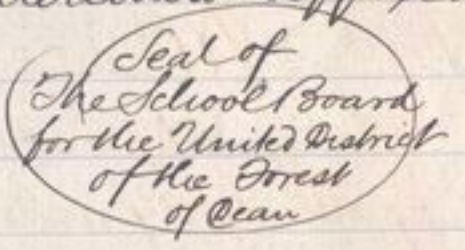 Seal of
The School Board
for the United District
of the Forest
of Dean